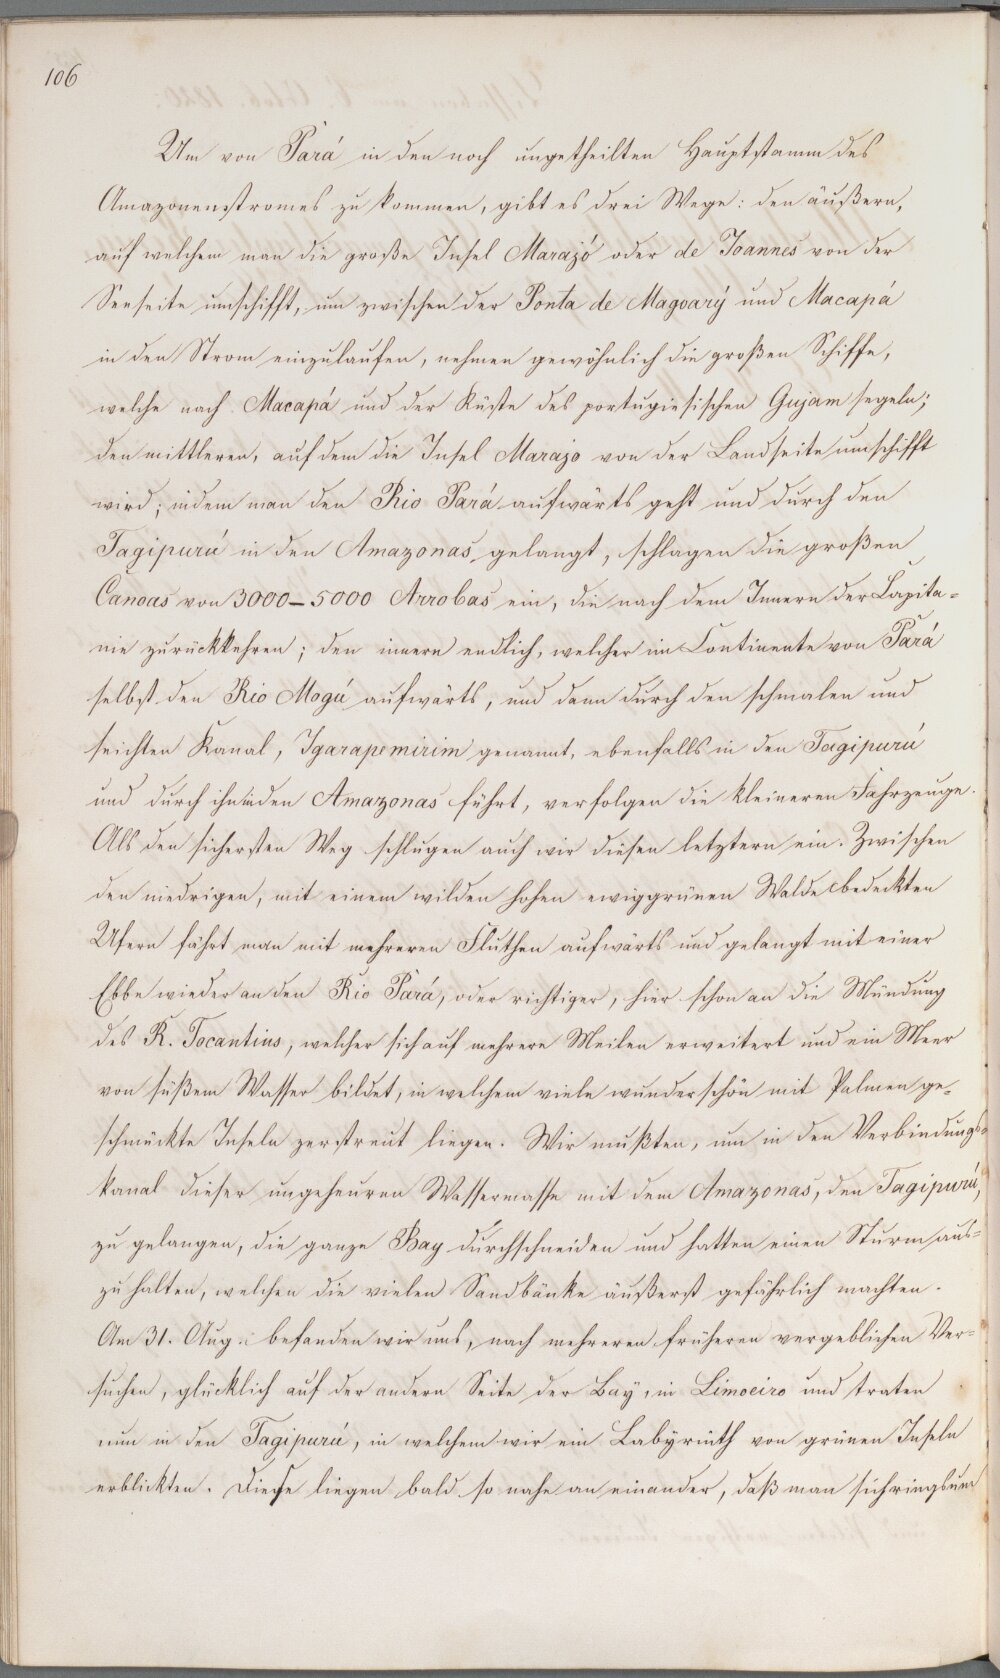 106
Um von Pará in den noch ungetheilten Hauptstamm des
Amazonenstromes zu kommen, gibt es drei Wege: den äußern,
auf welchem man die große Insel Marajó oder de Joannes von der
Seeseite umschifft, um zwischen der Ponta de Magoarý und Macapá
in den Strom einzulaufen, nehmen gewöhnlich die großen Schiffe,
welche nach Macapá und der Küste des portugiesischen Gujam segeln;
den mittleren, auf dem die Insel Marajo von der Landseite umschifft
wird; indem man den Rio Pará aufwärts geht und durch den
Tagipurú in den Amazonas gelangt, schlagen die großen
Canoas von 3000–5000 Arrobas ein, die nach dem Innern der Capita=
nie zurückkehren; den innern endlich, welcher im Continente von Pará
selbst den Rio Mogú aufwärts, und dann durch den schmalen und
seichten Kanal, Igarapemirim genannt, ebenfalls in den Tagipurú
und durch ihn in den Amazonas führt, verfolgen die kleineren Fahrzeuge.
Als den sichersten Weg schlugen auch wir diesen letztern ein. Zwischen
den niedrigen, mit einem wilden hohen ewiggrünen Walde bedeckten
Ufern fährt man mit mehreren Fluthen aufwärts und gelangt mit einer
Ebbe wieder an den Rio Pará, oder richtiger, hier schon an die Mündung
des R. Tocantins, welcher sich auf mehrere Meilen erweitert und ein Meer
von süßem Wasser bildet, in welchem viele wunderschön mit Palmen ge=
schmückte Inseln zerstreut liegen. Wir mußten, um in den Verbindungs=
kanal dieser ungeheuren Wassermasse mit dem Amazonas, den Tagipurú,
zu gelangen, die ganze Bay durchschneiden und hatten einen Sturm aus=
zuhalten, welchen die vielen Sandbänke äußerst gefährlich machten.
Am 31. Aug. befanden wir uns, nach mehreren früheren vergeblichen Ver=
suchen, glücklich auf der andern Seite der Bay, in Limoeiro und traten
nun in den Tagipurú, in welchem wir ein Labyrinth von grünen Inseln
erblickten. Diese liegen bald so nahe an einander, daß man sich ringsum